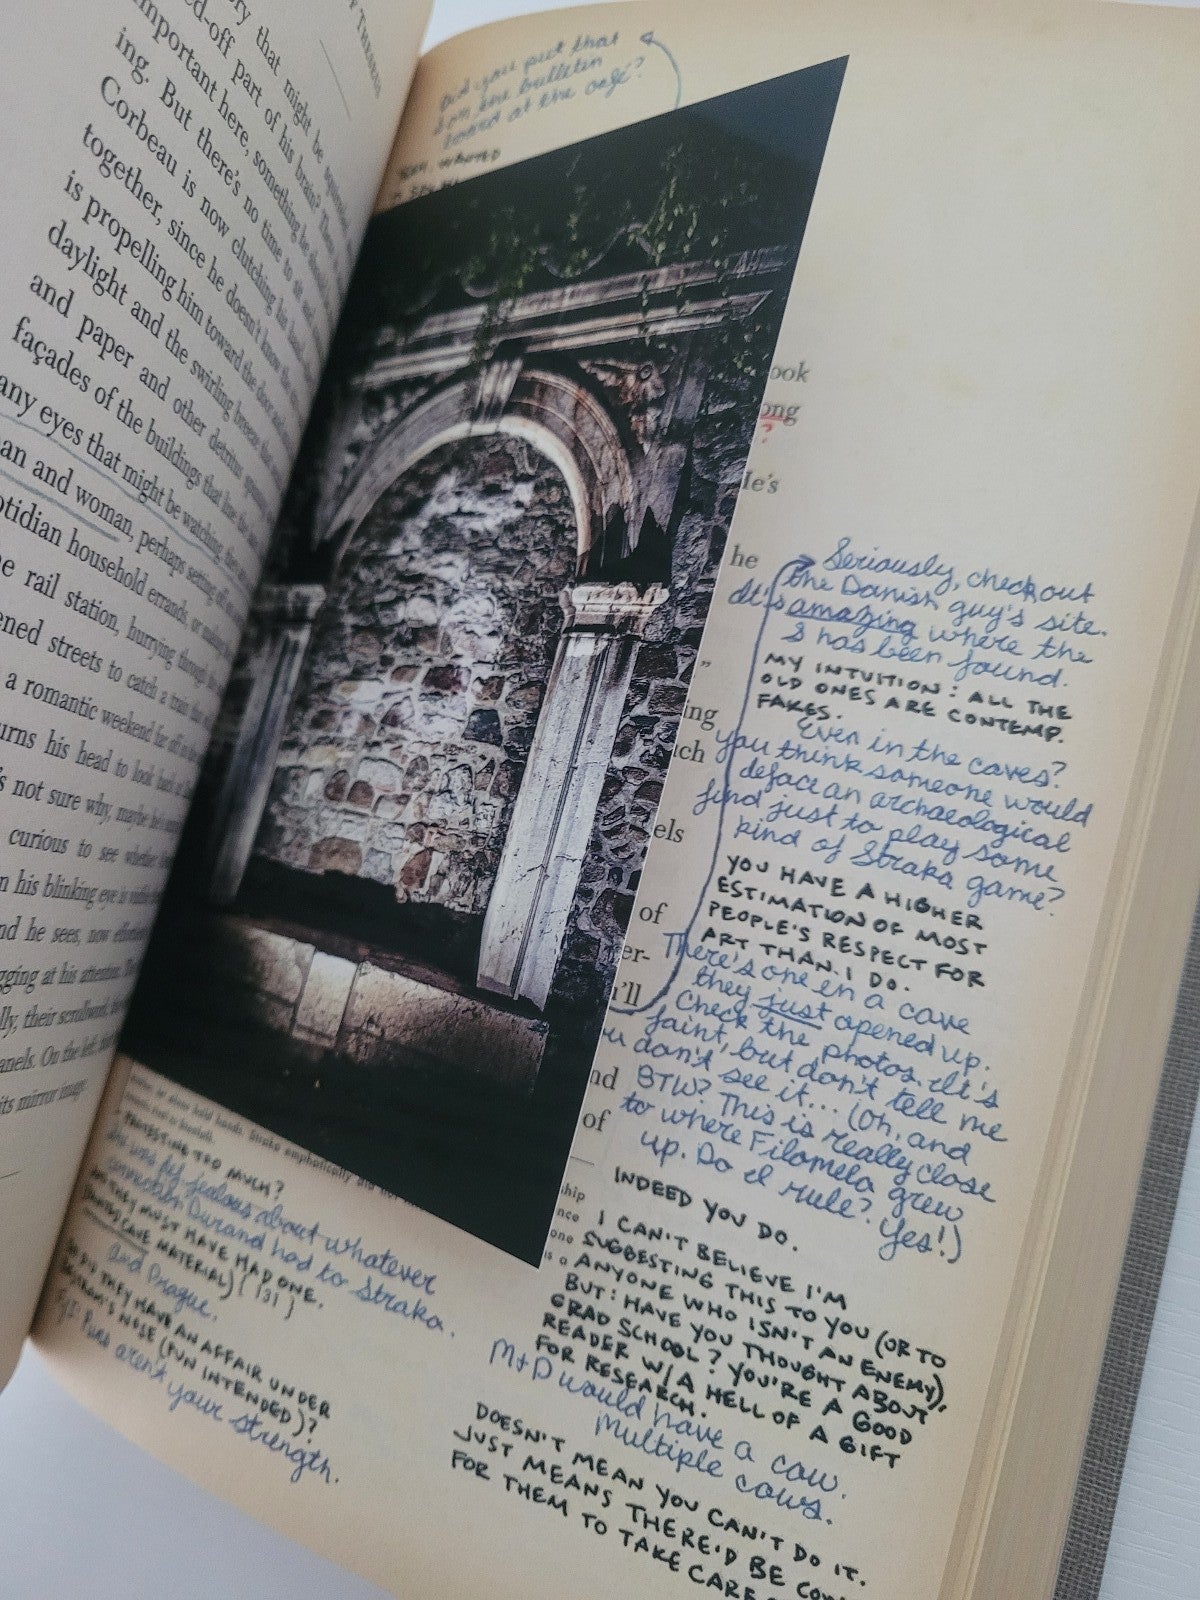 OF THESEUS
ry that might be
ed-off part of his brain? There
important here, something he should
ing. But there's no time to sit and
Corbeau is now clutching his hand
together, since he doesn't know the
is propelling him toward the door and
daylight and the swirling breeze that
and paper and other detritus against
façades of the buildings that line the
any eyes that might be watching, they
an and woman, perhaps setting off on
otidian household errands, or making
e rail station, hurrying through the
ened streets to catch a train that
a romantic weekend far off in the
urns his head to look back at
's not sure why, maybe he's
curious to see whether
n his blinking eye is
nd he sees, now
gging at his attention.
lly, their scrollwork,
anels. On the left,
its mirror image.
Did you put that
on the bulletin
board at the café?
ook
ong
?
He's
he
"
ing
ich
els
of
er-
'll
nd
of
ship
nce
one
is a
Seriously, check out
the Danish guy's site.
It's amazing where the
S has been found.
MY INTUITION: ALL THE
OLD ONES ARE CONTEMP.
FAKES.
Even in the caves?
you think someone would
deface an archaeological
find just to play some
kind of Straka game?
YOU HAVE A HIGHER
ESTIMATION OF MOST
PEOPLE'S RESPECT FOR
ART THAN I DO.
There's one in a cave
they just opened up.
Check the photos. It's
faint, but don't tell me
you don't see it... (Oh, and
BTW? This is really close
to where Filomela grew
up. Do I rule? Yes!)
INDEED YOU DO.
I CAN'T BELIEVE I'M
SUGGESTING THIS TO YOU (OR TO
ANYONE WHO ISN'T AN ENEMY),
BUT: HAVE YOU THOUGHT ABOUT
GRAD SCHOOL? YOU'RE A GOOD
READER W/A HELL OF A GIFT
FOR RESEARCH.
M+D would have a cow.
Multiple cows.
DOESN'T MEAN YOU CAN'T DO IT.
JUST MEANS THERE'D BE
FOR THEM TO TAKE CARE
hold hands. Straka emphatically did not
PROTESTING TOO MUCH?
He was jealous about whatever
connection Durand had to Straka.
AND THEY MUST HAVE HAD ONE.
CAVE MATERIAL) (131)
and Prague.
SO DID THEY HAVE AN AFFAIR UNDER
EKSTROM'S NOSE (PUN INTENDED)?
FYI: Puns aren't your strength.